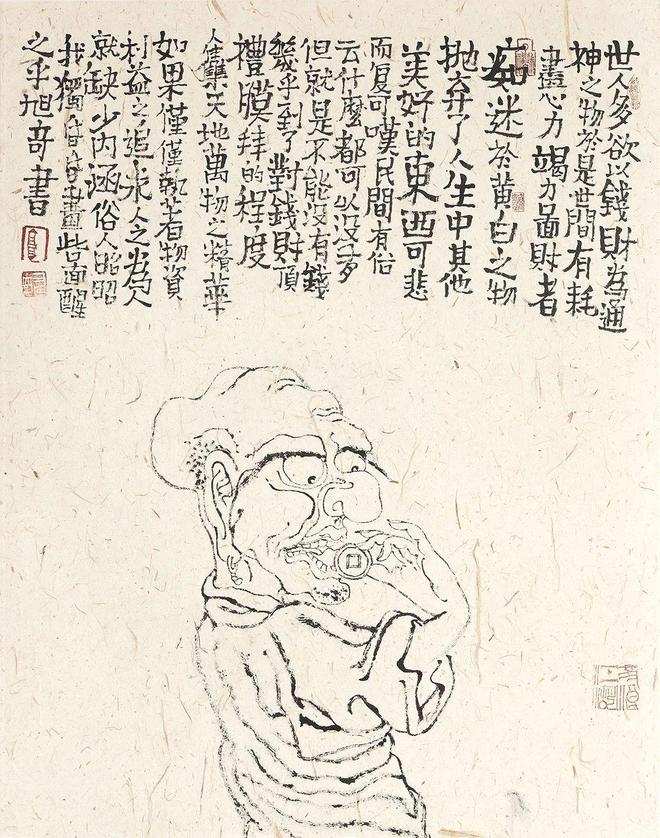 世人多欲以錢財為通
神之物於是世間有耗
盡心力竭力圖財者
痴迷於黃白之物
拋弃了人生中其他
美好的東西可悲
而复可嘆民間有俗
云什麼都可以沒
但就是不能沒有錢
幾乎到了對錢財頂
禮膜拜的程度
人集天地萬物之精華
如果僅僅執著物資
利益之追求人之為人
就缺少內涵俗人昭昭
我獨昏昏畫些面醒
之乎旭奇書